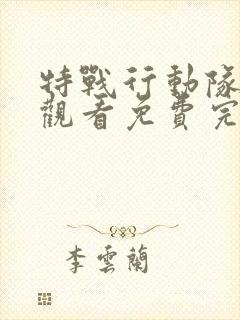 特戰行動隊
觀看免費完
李雲蘭